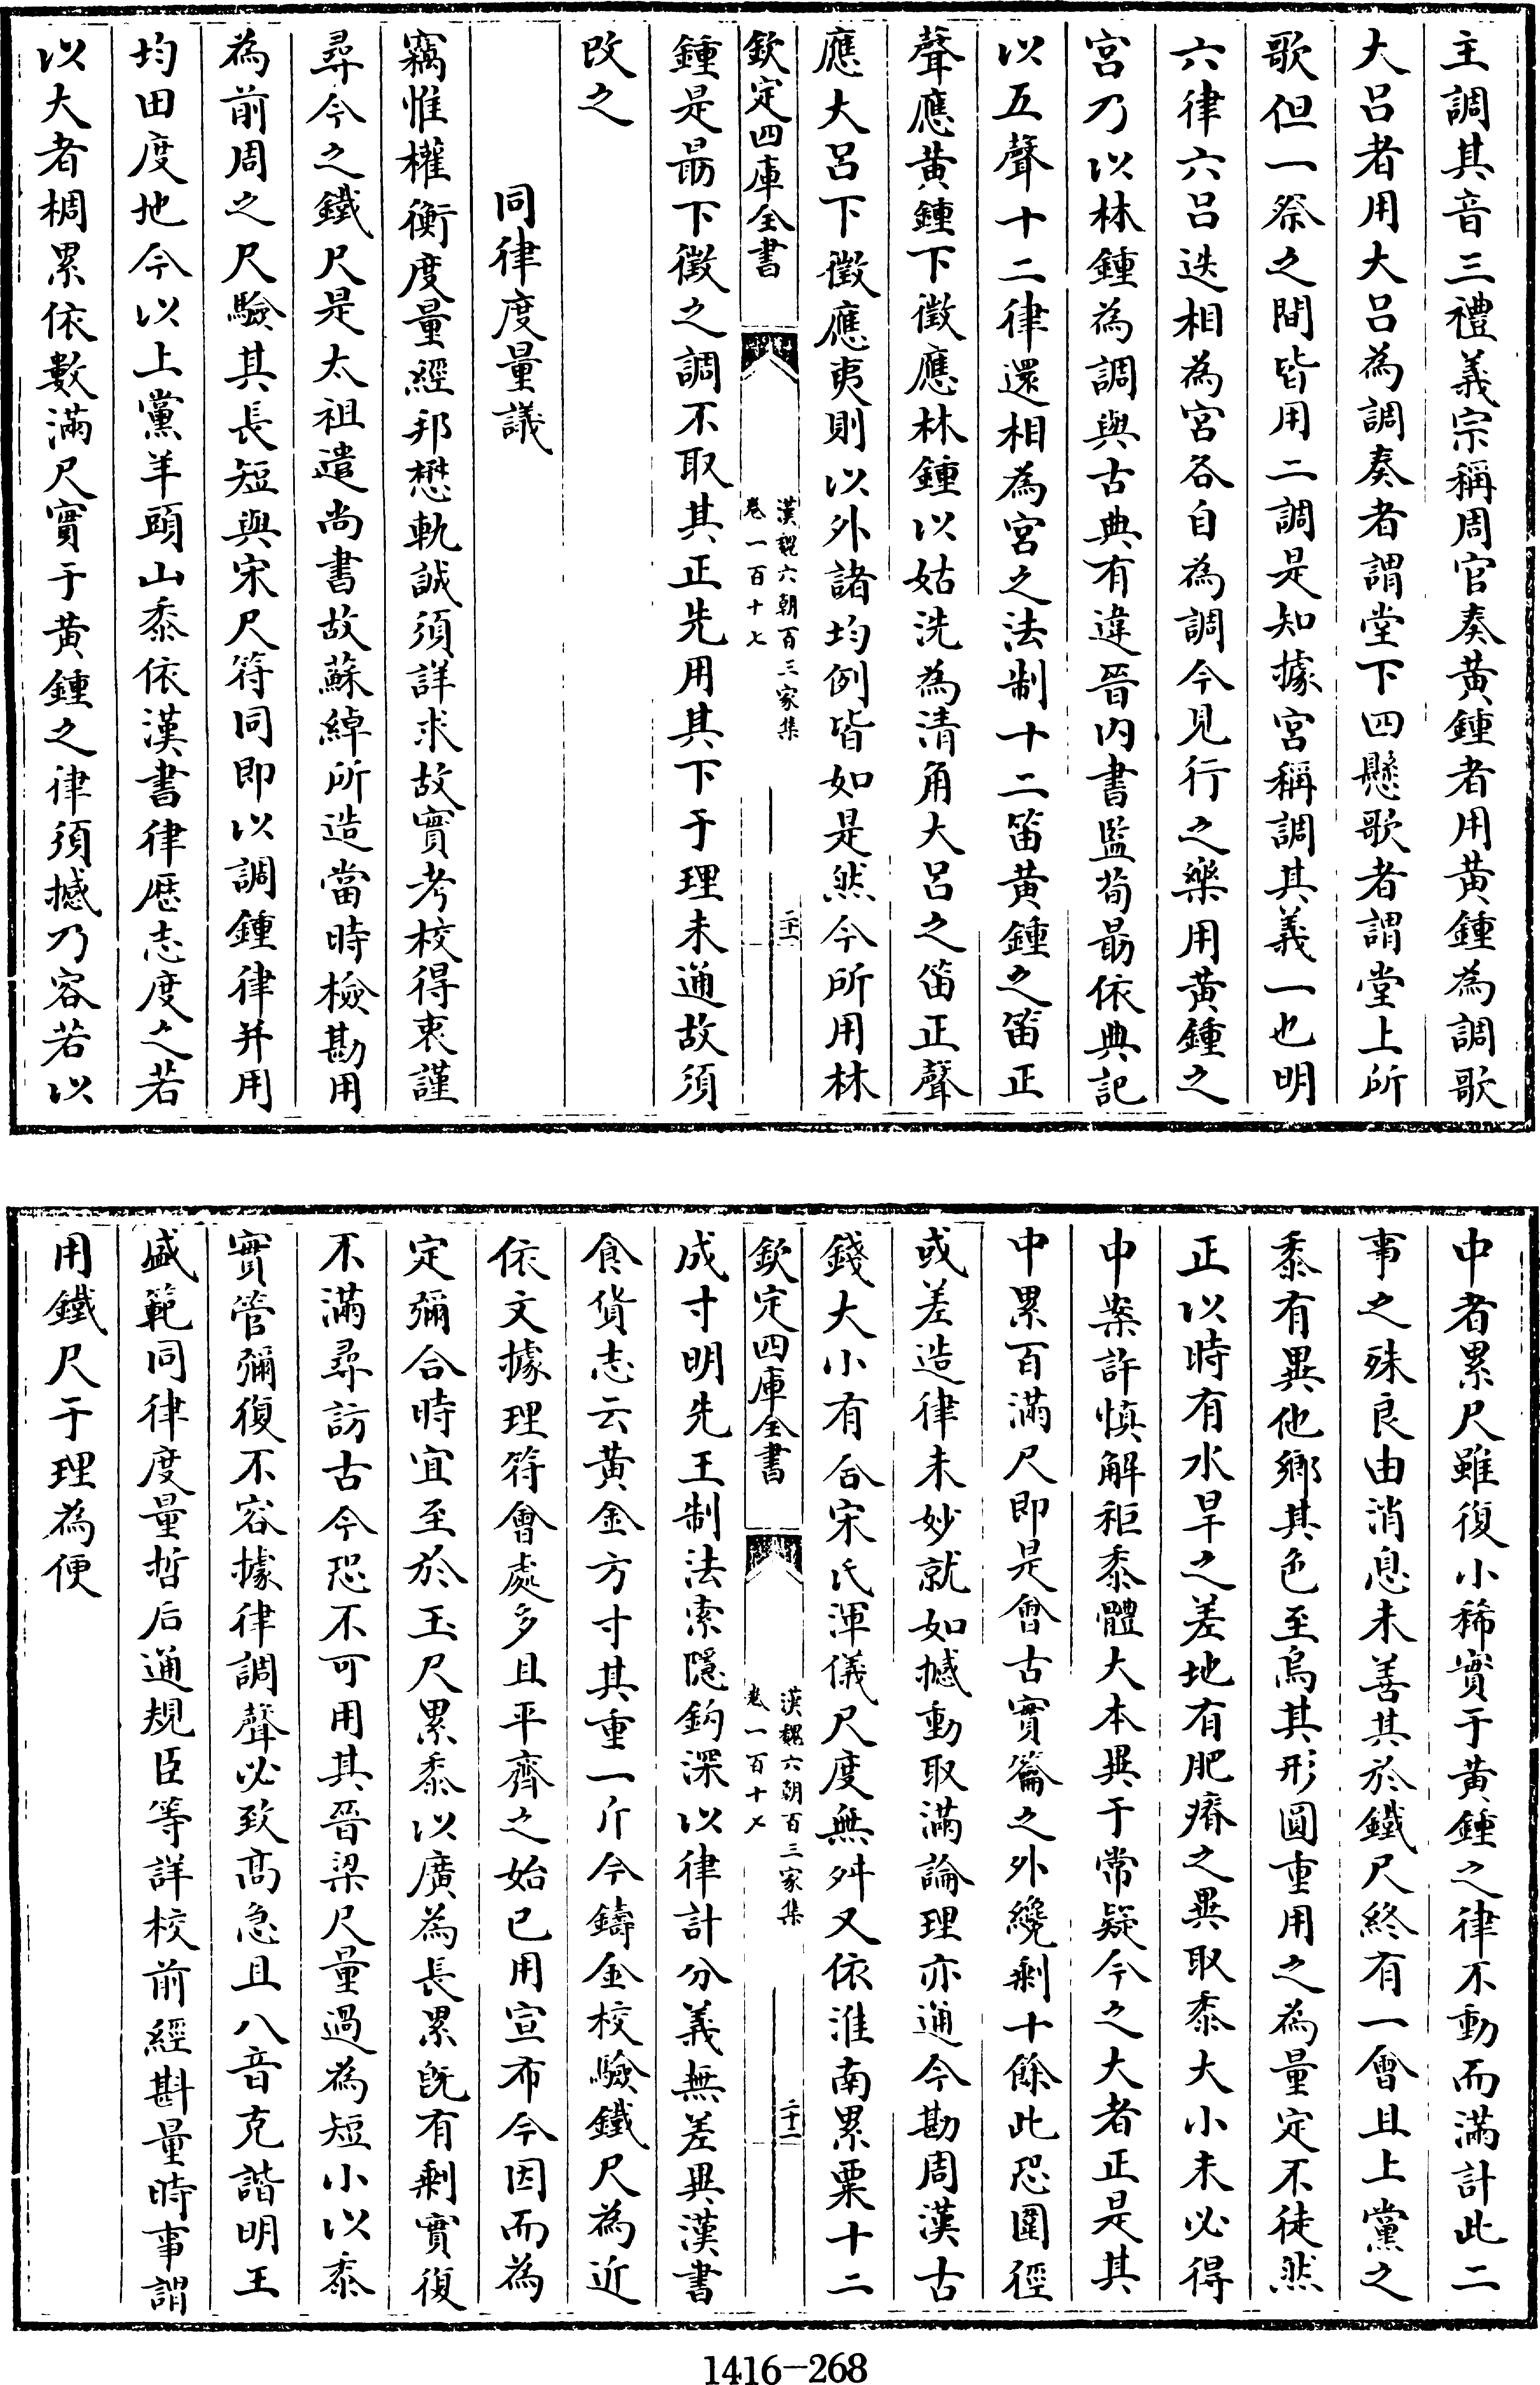 主調其音三禮義宗稱周官奏黃鍾者用黃鍾為調歌
大呂者用大呂為調奏者謂堂下四懸歌者謂堂上所
歌但一祭之間皆用二調是知據宮稱調其義一也明
六律六呂迭相為宮各自為調今見行之樂用黃鍾之
宮乃以林鍾為調與古典有違晉內書監荀勗依典記
以五聲十二律還相為宮之法制十二笛黃鍾之笛正
聲應黃鍾下徵應林鍾以姑洗為清角大呂之笛正聲
應大呂下徵應夷則以外諸均例皆如是然今所用林
欽定四庫全書
漢魏六朝百三家集
卷一百十七
二十一
鍾是勗下徵之調不取其正先用其下于理未通故須
改之
同律度量議
竊惟權衡度量經邦懋軌誠須詳求故實考校得衷謹
尋今之鐵尺是太祖遣尚書故蘇綽所造當時檢勘用
為前周之尺驗其長短與宋尺符同即以調鍾律并用
均田度地今以上黨羊頭山黍依漢書律厯志度之若
以大者稠累依數滿尺實于黃鍾之律須撼乃容若以
中者累尺雖復小稀實于黃鍾之律不動而滿計此二
事之殊良由消息未善其於鐵尺終有一會且上黨之
黍有異他鄉其色至烏其形圓重用之為量定不徒然
正以時有水旱之差地有肥瘠之異取黍大小未必得
中案許慎解秬黍體大本異于常疑今之大者正是其
中累百滿尺即是會古實籥之外纔剩十餘此恐圍徑
或差造律未妙就如撼動取滿論理亦通今勘周漢古
錢大小有合宋氏渾儀尺度無舛又依淮南累粟十二
欽定四庫全書
漢魏六朝百三家集
卷一百十七
二十二
成寸明先王制法索隱鈎深以律計分義無差異漢書
食貨志云黃金方寸其重一斤今鑄金校驗鐵尺為近
依文據理符會處多且平齊之始已用宣布今因而為
定彌合時宜至於玉尺累黍以廣為長累既有剩實復
不滿尋訪古今恐不可用其晉梁尺量過為短小以黍
實管彌復不容據律調聲必致高急且八音克諧明王
盛範同律度量哲后通規臣等詳校前經斟量時事謂
用鐵尺于理為便
1416-268